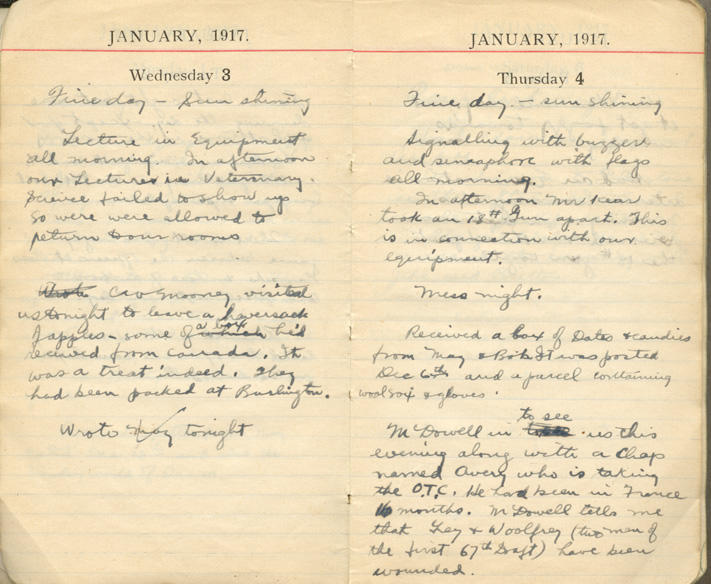 JANUARY, 1917.
Wednesday 3
Fine day – Sun shining
Lecture in Equipment
all morning. In afternoon
our Lecturer in Veterinary
Science failed to show up
so were were allowed to
return to our rooms
Wrote Cav Mooney visited
us tonight to leave a haversack
of apples – some of which a box he'd
received from Canada. It
was a treat indeed. They
had been packed at Burlington.
Wrote May tonight
JANUARY, 1917.
Thursday 4
Fine day. – sun shining
Signalling with buzzer
and semaphore with flags
all morning.
In afternoon Mr Kear
took an 18 Gun apart. This
is in connection with our
equipment.
Mess night.
Received a box of Dates & candies
from May & Bob. It was posted
Dec 6th and a parcel containing
wool sox & gloves.
McDowell in to see us this
evening along with a chap
named Avery who is taking
the O.T.C. He had been in France
16 months. McDowell tells me
that Ley & Woolfrey (two men of
the first 67th Draft) have been
wounded.